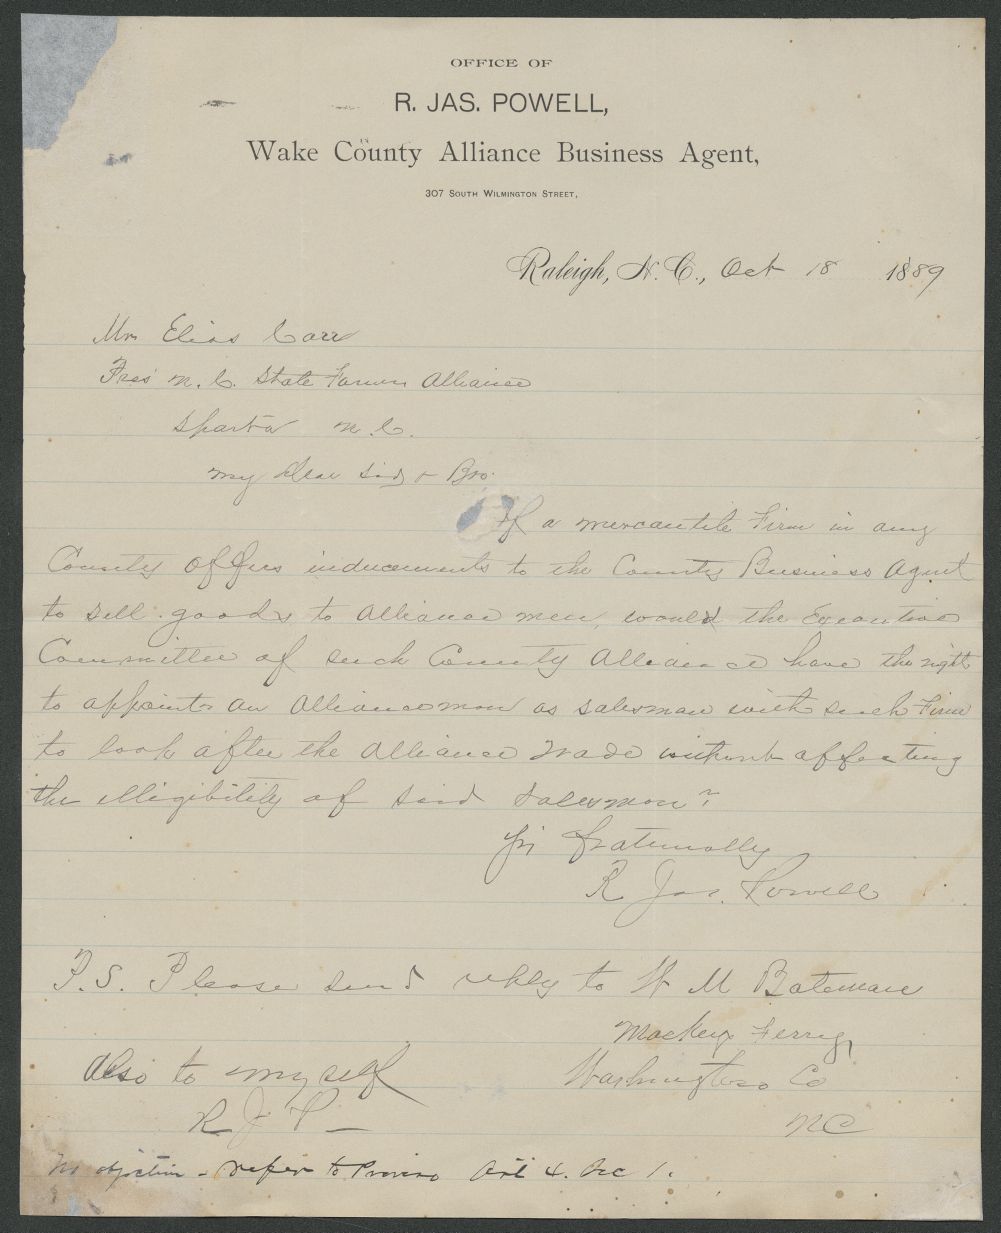 OFFICE OF
R. JAS. POWELL,
Wake County Alliance Business Agent,
307 South Wilmington Street,
Raleigh, N. C., Oct 18 1889
Mr Elias Carr
Pres N. C. State Farmers Alliance
Sparta N. C.
My Dear Sir & Bro.
If a mercantile Firm in any
County offers inducements to the County Business Agent
to sell goods to Alliance men, would the Executive
Committee of such County Alliance have the right
to appoint an Allianceman as salesman with such Firm
to look after the Alliance Trade without affecting
the elligibility of said salesman?
Yrs fraternally
R Jas. Powell
P.S. Please send reply to W M Bateman
Mackeys Ferry,
Also to myself Washington Co
R J P — NC
No objection - refer to Proviso Art 4. Sec 1.